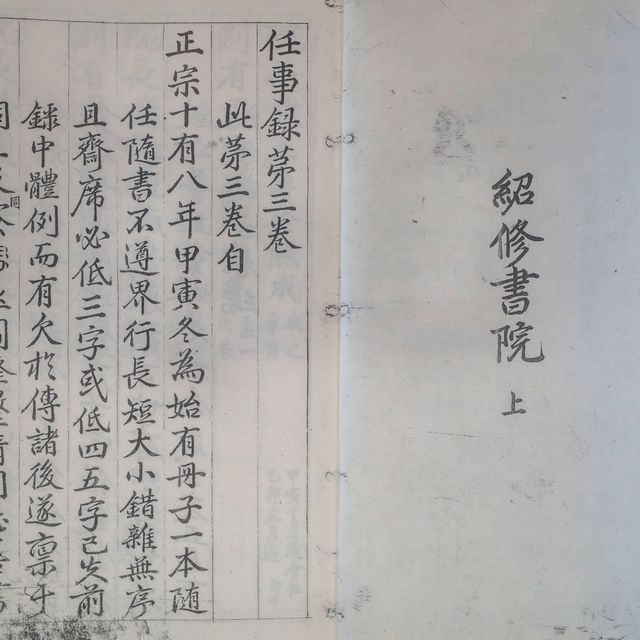 紹修書院
上
任事録苐三巻
此苐三巻自
正宗十有八年甲寅冬為始有冊子一本随
任隨書不遵界行長短大小錯雜無序
且齋席必低三字或低四五字已失前
錄中體例而有欠於傳諸後遂禀于